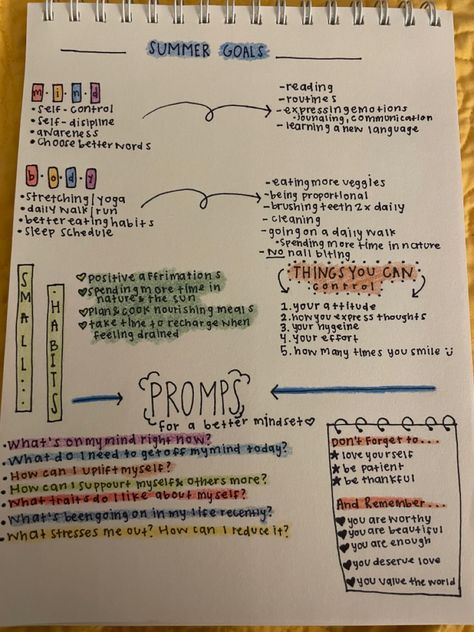 SUMMER GOALS
mind
• self-control
• self-disipline
• awareness
• choose better words
- reading
- routines
- expressing emotions
• journaling, communication
- learning a new language
body
• stretching/yoga
• daily walk/run
• better eating habits
• sleep schedule
- eating more veggies
- being proportional
- brushing teeth 2x daily
- cleaning
- going on a daily walk
• spending more time in nature
- no nail biting
SMALL:
HABITS
♡ positive affrimations
♡ spending more time in
nature & the sun
♡ plan & cook nourishing meals
♡ take time to recharge when
feeling drained
THINGS YOU CAN
control
1. your attitude
2. how you express thoughts
3. your hygeine
4. your effort
5. how many times you smile
PROMPS
for a better mindset ♡
• What's on my mind right now?
• What do I need to get off my mind today?
• How can I uplift myself?
• How can I suppourt myself & others more?
• What traits do I like about myself?
• What's been going on in my life recently?
• What stresses me out? How can I reduce it?
Don't forget to...
★ love yourself
★ be patient
★ be thankful
And Remember...
♥ you are worthy
♥ you are beautiful
♥ you are enough
♥ you deserve love
♥ you value the world